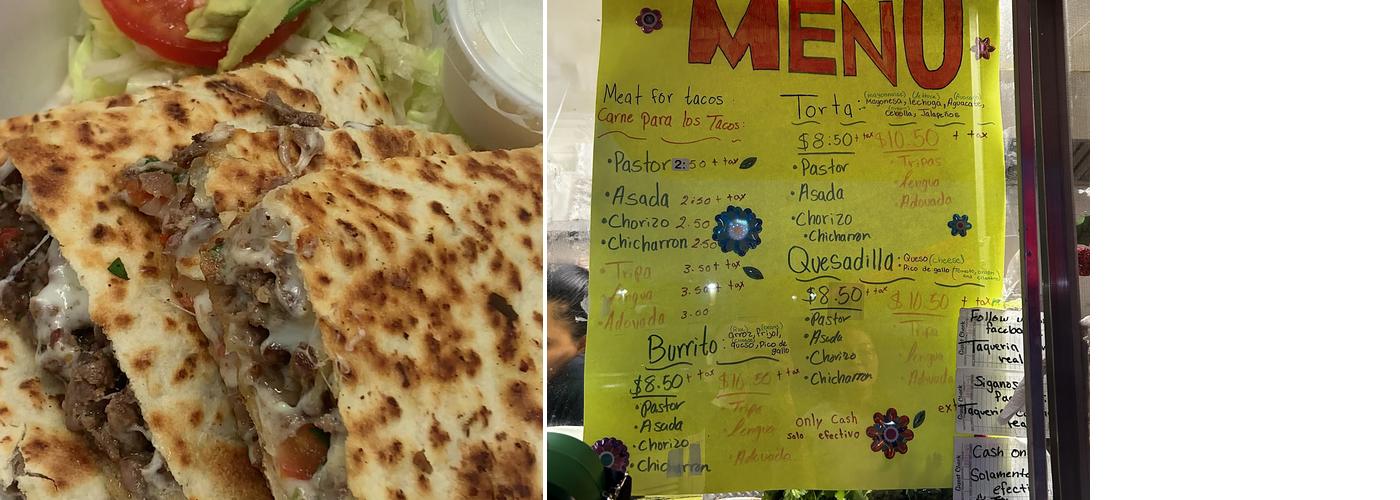 MENU
Meat for tacos
Carne para los Tacos:
• Pastor 2:50 + tax
• Asada 2:50 + tax
• Chorizo 2.50
• Chicharron 2.50
• Tripa 3.50 + tax
• Lengua 3.50 + tax
• Adovada 3.00
Burrito: arroz, frijol,
queso, Pico de
gallo
$8.50 + tax $10.50 + tax
• Pastor • Tripa
• Asada • Lengua
• Chorizo • Adovada
• Chicharron
Torta: (mayonnaise) (lettuce) (Avocado)
Mayonesa, lechuga, Aguacate,
Cebolla, Jalapeños
$8.50 + tax $10.50 + tax
• Pastor • Tripas
• Asada • Lengua
• Chorizo • Adovada
• Chicharron
Quesadilla • Queso (cheese)
Pico de gallo (Tomato, onion
and cilantro)
$8.50 + tax $10.50 + tax
• Pastor • Tripa
• Asada • Lengua
• Chorizo • Adovada
• Chicharron
only Cash
solo efectivo
ext
Follow u
facebo
Taqueria
real
Siganos
Taqueri
rea
Cash on
Solament
efecti